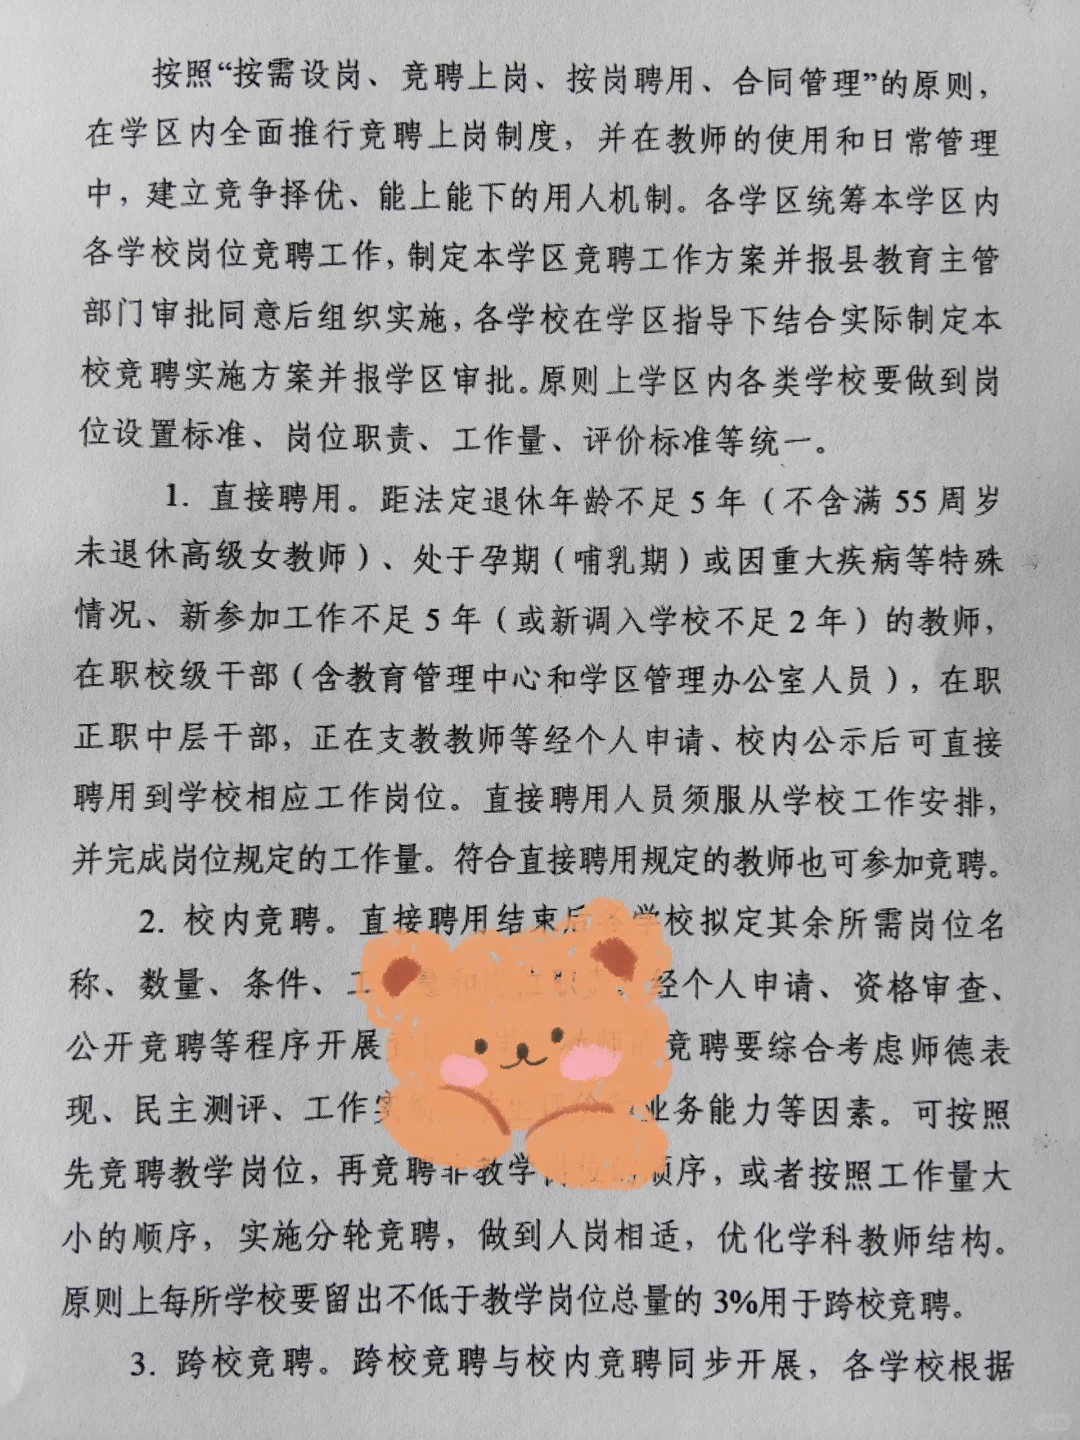 按照“按需设岗、竞聘上岗、按岗聘用、合同管理”的原则，
在学区内全面推行竞聘上岗制度，并在教师的使用和日常管理
中，建立竞争择优、能上能下的用人机制。各学区统筹本学区内
各学校岗位竞聘工作，制定本学区竞聘工作方案并报县教育主管
部门审批同意后组织实施，各学校在学区指导下结合实际制定本
校竞聘实施方案并报学区审批。原则上学区内各类学校要做到岗
位设置标准、岗位职责、工作量、评价标准等统一。
1. 直接聘用。距法定退休年龄不足5年（不含满55周岁
未退休高级女教师）、处于孕期（哺乳期）或因重大疾病等特殊
情况、新参加工作不足5年（或新调入学校不足2年）的教师，
在职校级干部（含教育管理中心和学区管理办公室人员），在职
正职中层干部，正在支教教师等经个人申请、校内公示后可直接
聘用到学校相应工作岗位。直接聘用人员须服从学校工作安排，
并完成岗位规定的工作量。符合直接聘用规定的教师也可参加竞聘。
2. 校内竞聘。直接聘用结束后各学校拟定其余所需岗位名
称、数量、条件、工 量和 职 经个人申请、资格审查、
公开竞聘等程序开展 教师的竞聘要综合考虑师德表
现、民主测评、工作实绩 评价 业务能力等因素。可按照
先竞聘教学岗位，再竞聘非教学岗位的顺序，或者按照工作量大
小的顺序，实施分轮竞聘，做到人岗相适，优化学科教师结构。
原则上每所学校要留出不低于教学岗位总量的3%用于跨校竞聘。
3. 跨校竞聘。跨校竞聘与校内竞聘同步开展，各学校根据